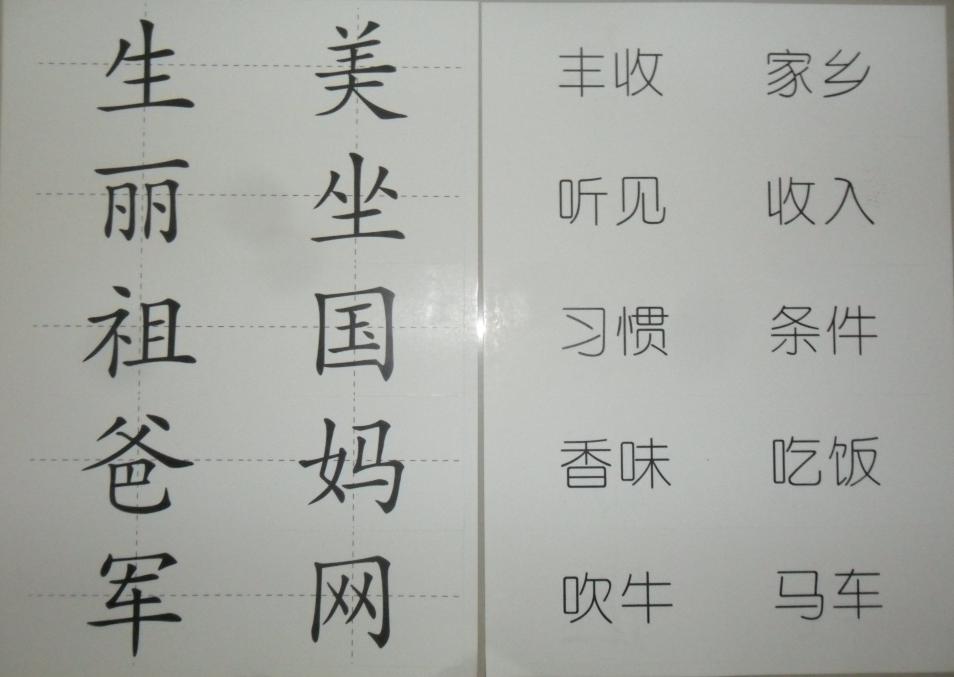 生 美
丽 坐
祖 国
爸 妈
军 网
丰收 家乡
听见 收入
习惯 条件
香味 吃饭
吹牛 马车